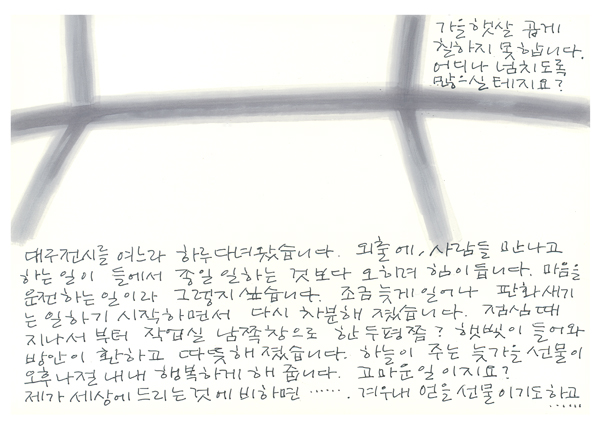 가을햇살 곱게
칠하지 못합니다.
어디나 넘치도록
많으실테지요?
대구전시를 여느라 하루다녀왔습니다. 외출에, 사람들 만나고
하는일이 들에서 종일 일하는 것보다 오히려 힘이듭니다. 마음을
운전하는일이라 그렇지싶습니다. 조금늦게일어나 판화새기
는 일하기 시작하면서 다시 차분해졌습니다. 점심때
지나서부터 작업실 남쪽창으로 한두평쯤? 햇빛이 들어와
방안이 환하고 따뜻해졌습니다. 하늘이 주는 늦가을 선물이
오후나절 내내 행복하게 해 줍니다. 고마운일이지요?
제가 세상에 드리는 것에 비하면 ······. 겨우내 얻을 선물이기도하고
······